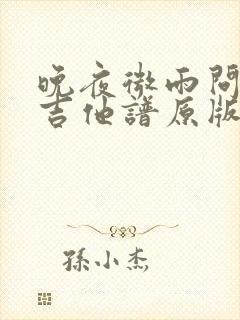 晚夜微雨問
吉他譜原版
孫小杰